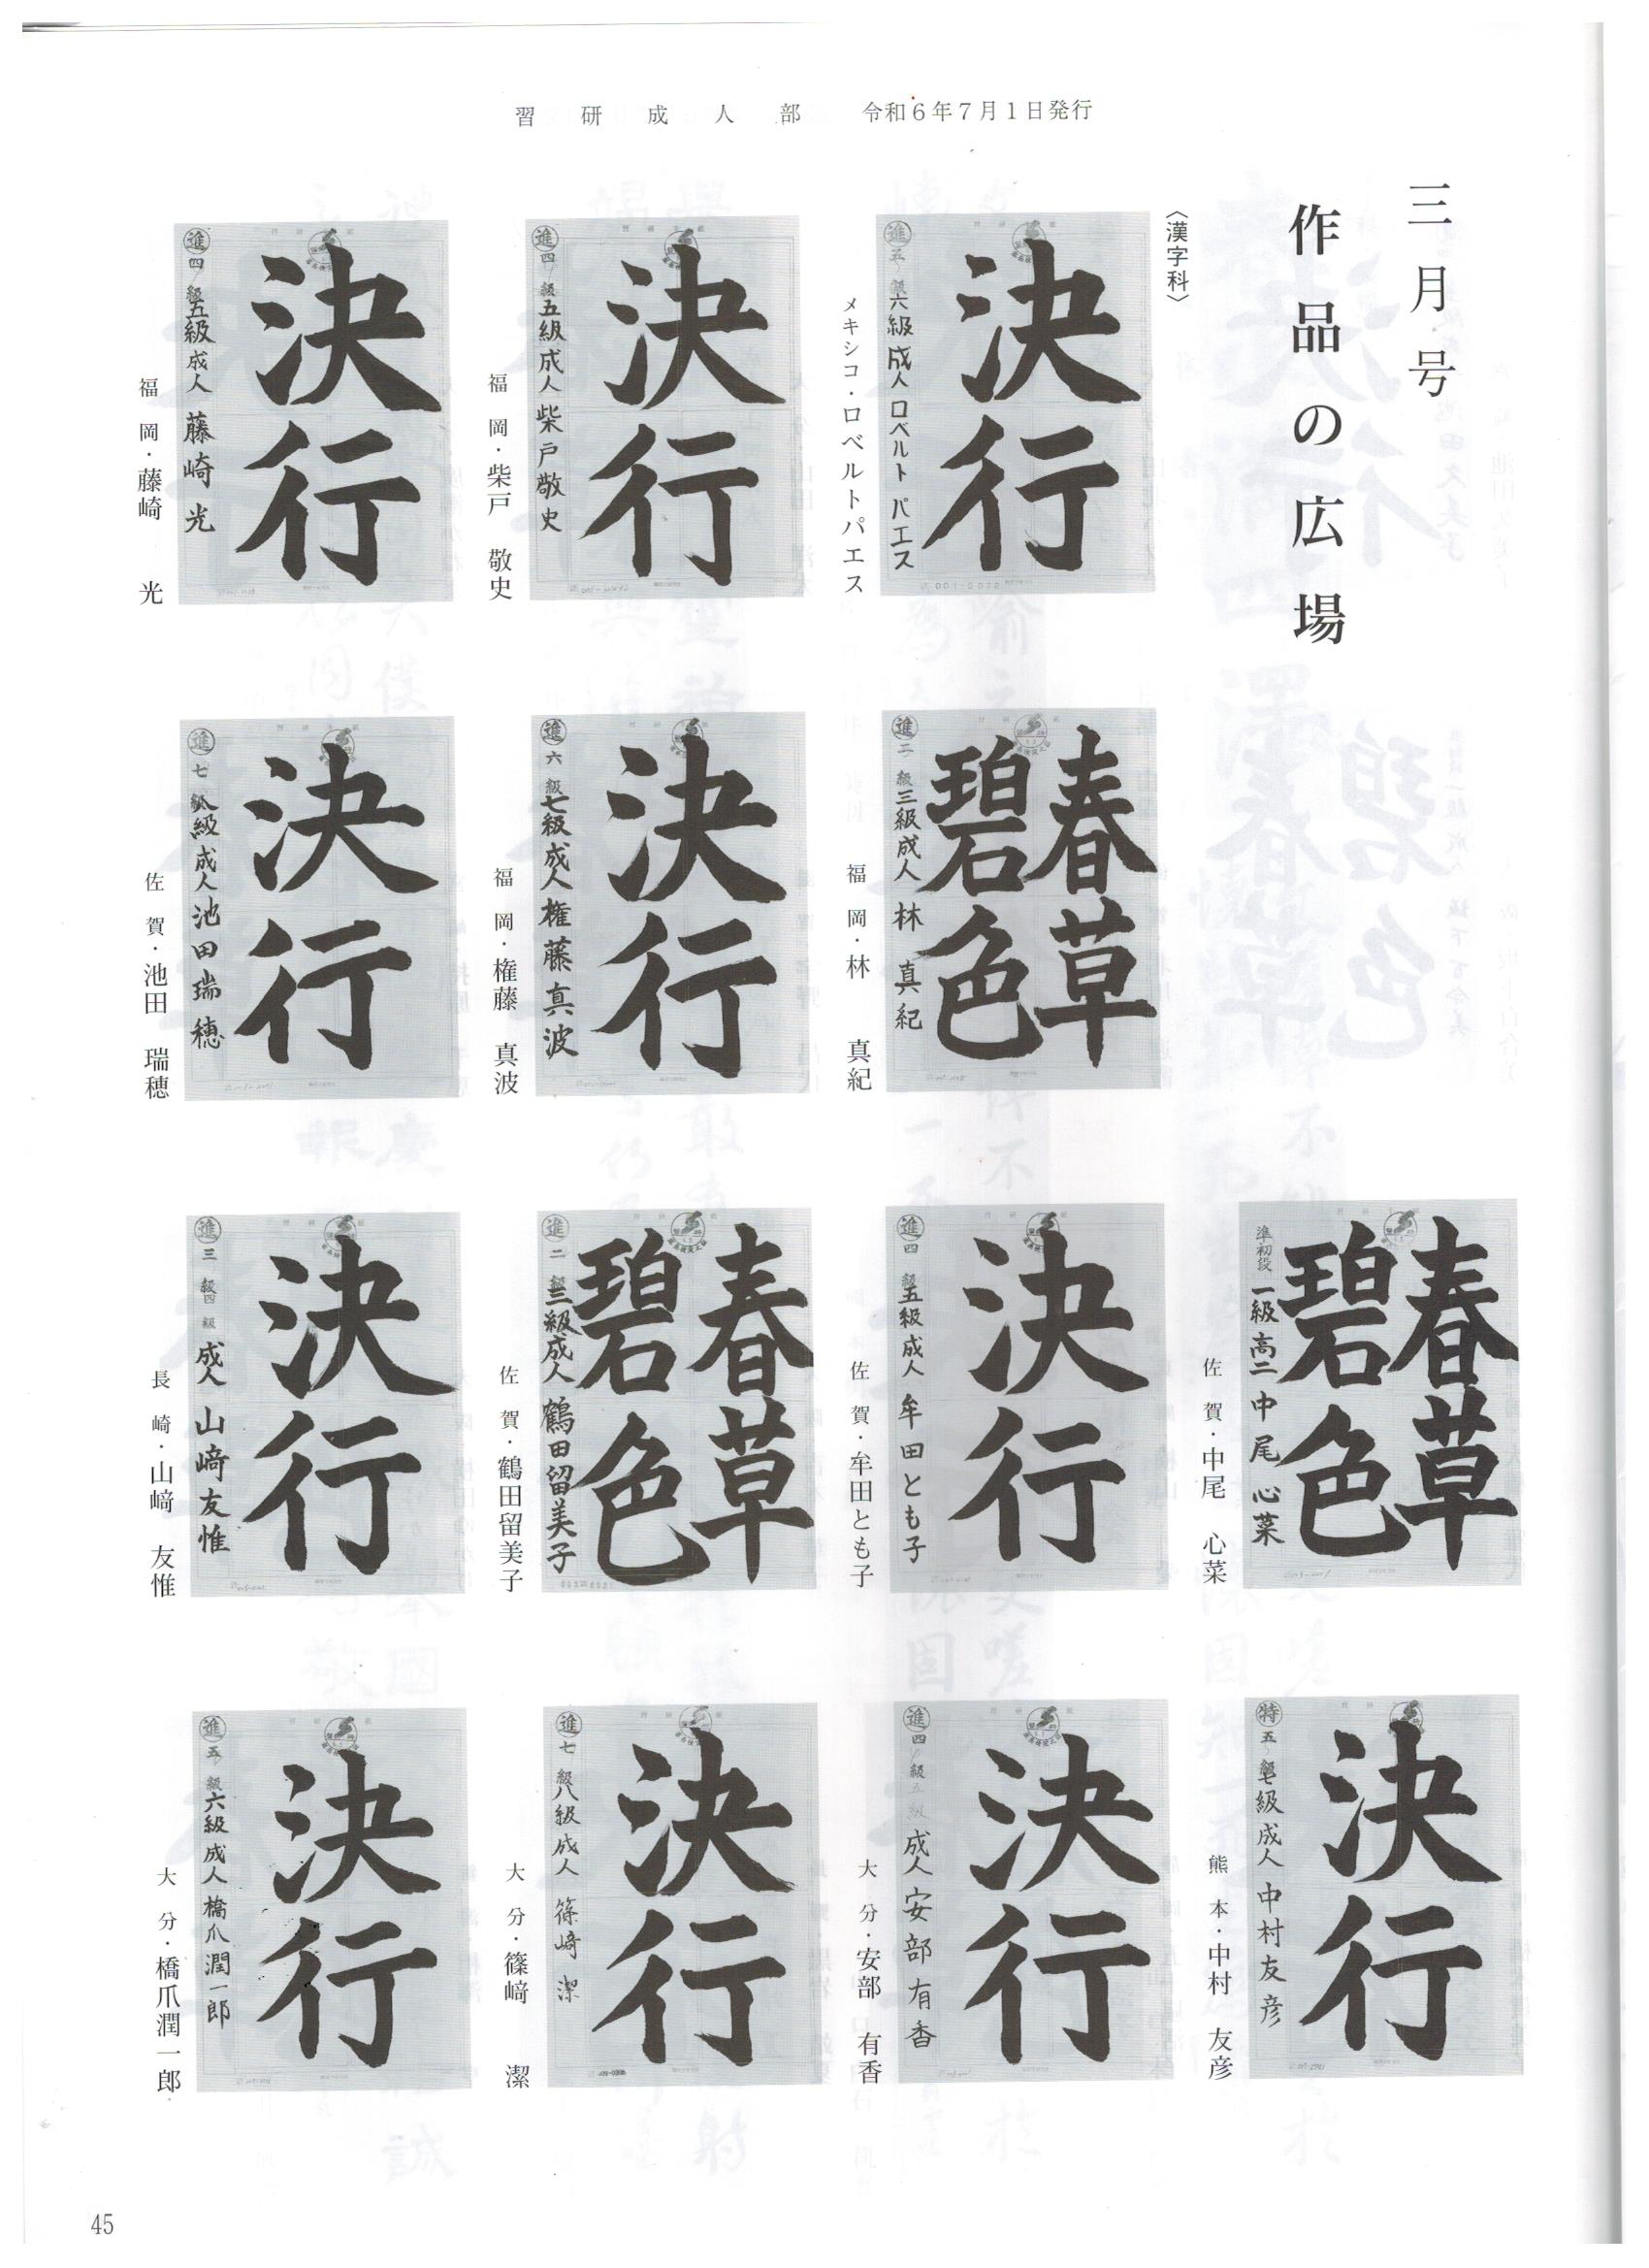 習研成人部　令和６年７月１日発行
三月号
作品の広場
〈漢字科〉
決行
進五級六級成人ロベルト パエス
メキシコ・ロベルトパエス
決行
進四級五級成人柴戸敬史
福岡・柴戸　敬史
決行
進四級五級成人藤崎光
福岡・藤崎　光
春草
碧色
進二級三級成人林真紀
福岡・林　真紀
決行
進六級七級成人権藤真波
福岡・権藤　真波
決行
進七級八級成人池田瑞穂
佐賀・池田　瑞穂
春草
碧色
準初段一級高二中尾心菜
佐賀・中尾　心菜
決行
進四級五級成人牟田とも子
佐賀・牟田とも子
春草
碧色
進二級三級成人鶴田留美子
佐賀・鶴田留美子
決行
進三級四級成人山﨑友惟
長崎・山﨑　友惟
決行
特五級七級成人中村友彦
熊本・中村　友彦
決行
進四級五級成人安部有香
大分・安部　有香
決行
進七級八級成人篠﨑潔
大分・篠﨑　潔
決行
進五級六級成人橋爪潤一郎
大分・橋爪潤一郎
45